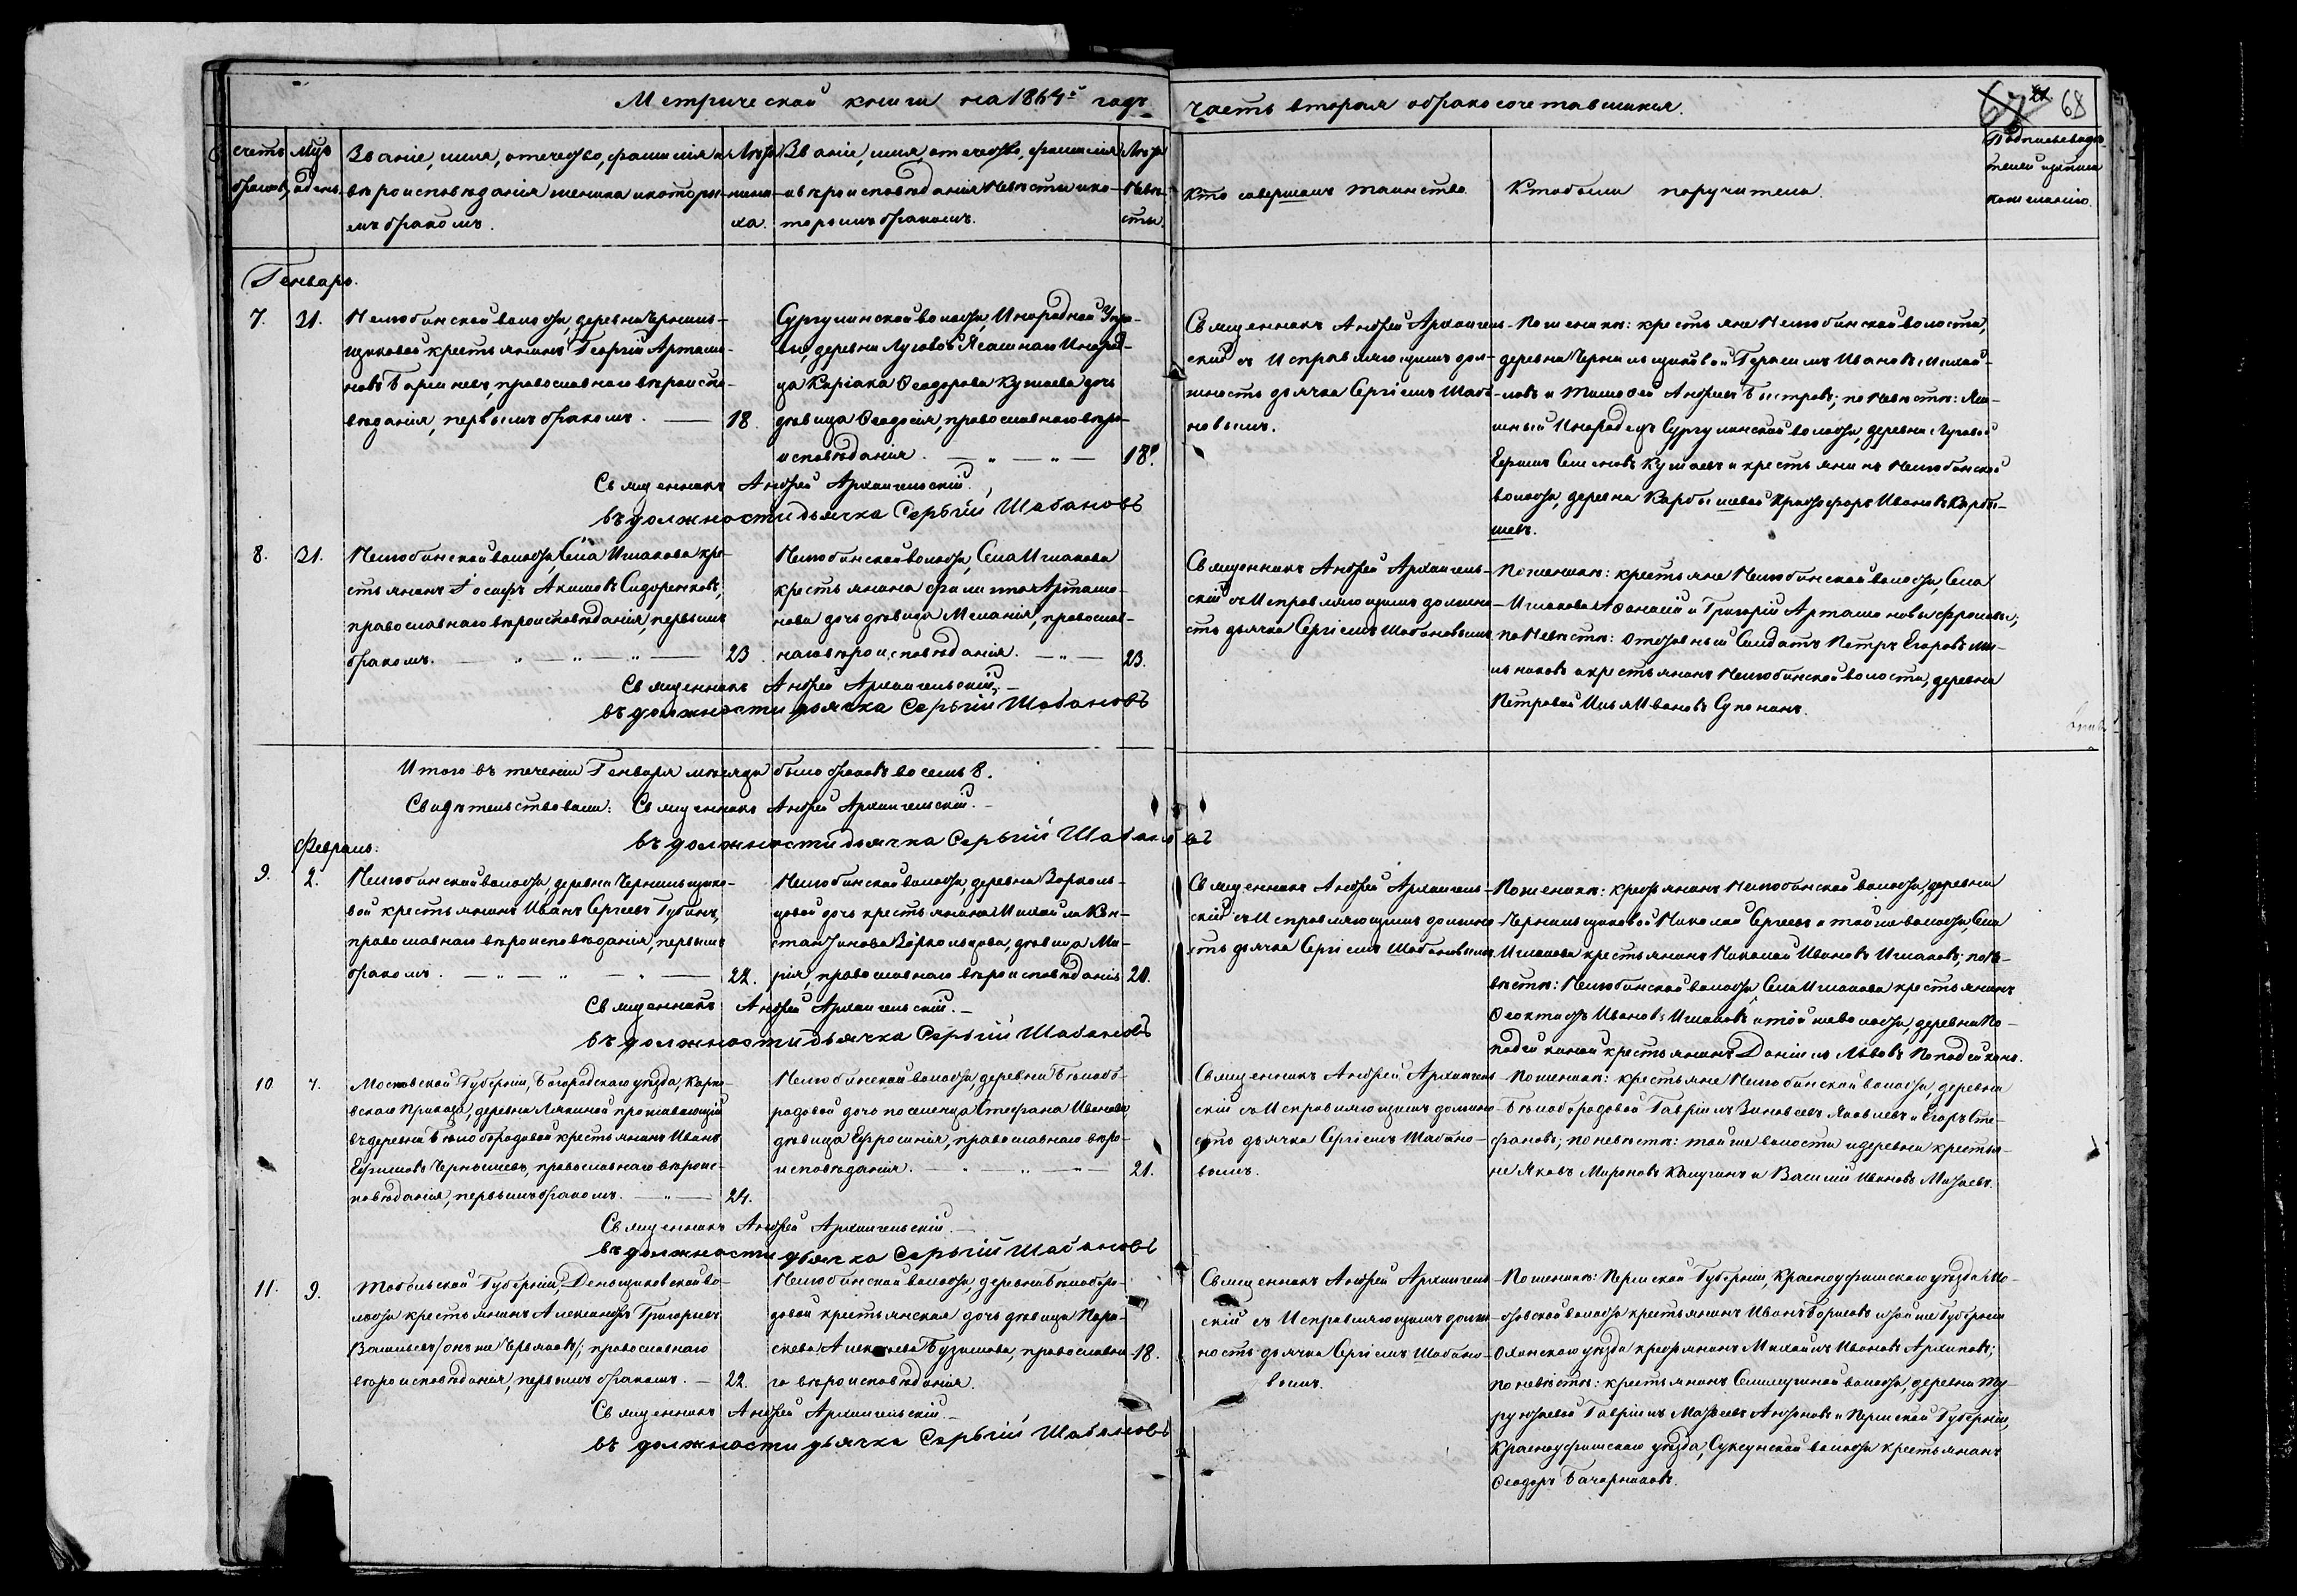 Метрической книги на 1864й годъ
часть вторая о бракосочетавшихся.
68
счетъ браковъ
Мцъ и день
Званіе, имя, отечество, фамилія и
вѣроисповѣданія жениха и которы-
мъ бракомъ.
Лѣта
жени-
ха.
Званіе, имя, отечество, фамилія
и вѣроисповѣданія невѣсты и ко-
торымъ бракомъ.
Лѣта
невѣ-
сты.
Кто совершалъ таинство
Кто были поручители.
Генварь.
7.
31.
Нелюбинской волости, деревни Черниль-
щиковой крестьянинъ Георгій Артамо-
новъ, православнаго вѣроиспо-
вѣданія, первымъ бракомъ.
18.
Сургулинской волости, Инородной Упра-
вы, деревни Луговой Ясашнаго Инород-
ца Киріака Ѳеодорова Кужаева дочь
дѣвица Ѳеодосія, православнаго вѣро-
исповѣданія.
18.
Священникъ Андрей Архангель-
скій съ Исправляющимъ дол-
жность дьячка Сергіемъ Шаба-
новымъ.
По женихѣ: крестьяне Нелюбинской волости,
деревни Чернильщиковой Герасимъ Ивановъ Михай-
ловъ и Тимофей Андреевъ Быстровъ; по невѣстѣ: Яса-
шный Инородецъ Сургулинской волости, деревни Луговой
Ефимъ Семеновъ Кужаевъ и крестьянинъ Нелюбинской
волости, деревни Карбышевой Ивановъ Карбы-
шевъ.
Священникъ Андрей Архангельскій.
въ должности дьячка Сергѣй Шабановъ
8.
31.
Нелюбинской волости, Села Иглакова кре-
стьянинъ Іосифъ Акимовъ Сидоренковъ,
православнаго вѣроисповѣданія, первымъ
бракомъ.
23.
Нелюбинской волости, Села Иглакова
крестьянина Артамо-
нова дочь дѣвица Меланія, православ-
наго вѣроисповѣданія.
23.
Священникъ Андрей Архангель-
скій съ Исправляющимъ должно-
сть дьячка Сергіемъ Шабановымъ
По женихѣ: крестьяне Нелюбинской волости, Села
Иглакова Афанасій и Григорій Артамоновы Фроловы;
по невѣстѣ: отставный Солдатъ Петръ Егоровъ
и крестьянинъ Нелюбинской волости, деревни
Петровой Илья Ивановъ Супонинъ.
Священникъ Андрей Архангельскій.
въ должности дьячка Сергѣй Шабановъ
Итого въ теченіи Генваря мѣсяца было браковъ восемь 8.
Свидѣтельствовали: Священникъ Андрей Архангельскій.
въ должности дьячка Сергѣй Шабановъ
Февраль.
9.
2.
Нелюбинской волости, деревни Чернильщико-
вой крестьянинъ Иванъ Сергеевъ Губинъ,
православнаго вѣроисповѣданія, первымъ
бракомъ.
22.
Нелюбинской волости, деревни Зоркаль-
цовой дочь крестьянина Михайла Кон-
стантинова Зоркальцова, дѣвица Ма-
рія, православнаго вѣроисповѣданія
20.
Священникъ Андрей Архангель-
скій съ Исправляющимъ должно-
сть дьячка Сергіемъ Шабановымъ
По женихѣ: крестьянинъ Нелюбинской волости, деревни
Чернильщиковой Николай Сергеевъ и той же волости, Села
Иглакова крестьянинъ Николай Ивановъ Иглаковъ; по не-
вѣстѣ: Нелюбинской волости, Села Иглакова крестьянинъ
Ѳеоктистъ Ивановъ Иглаковъ и той же волости, деревни По-
подейкиной крестьянинъ Даніилъ Львовъ Поподейкинъ.
Священникъ Андрей Архангельскій.
въ должности дьячка Сергѣй Шабановъ
10.
7.
Московской Губерніи, Богородскаго уѣзда, Карпо-
вскаго Приказа, деревни Лякиной проживающій
въ деревнѣ Бѣлобородовой крестьянинъ Иванъ
Ефимовъ Чернышевъ, православнаго вѣроис-
повѣданія, первымъ бракомъ.
24.
Нелюбинской волости, деревни Бѣлобо-
родовой дочь поселенца Стефана Иванова
дѣвица Ефросинія, православнаго вѣро-
исповѣданія.
21.
Священникъ Андрей Архангель-
скій съ Исправляющимъ должно-
сть дьячка Сергіемъ Шабано-
вымъ.
По женихѣ: крестьяне Нелюбинской волости, деревни
Бѣлобородовой Гавріилъ Зиновьевъ Яковлевъ и Егоръ Сте-
фановъ; по невѣстѣ: той же волости и деревни крестья-
не Яковъ Мироновъ Калугинъ и Василій Ивановъ
Священникъ Андрей Архангельскій.
въ должности дьячка Сергѣй Шабановъ
11.
9.
Тобольской Губерніи, Деньщиковской во-
лости крестьянинъ Александръ Григорьевъ
Васильевъ /онъ же Червяковъ/; православнаго
вѣроисповѣданія, первымъ бракомъ.
22.
Нелюбинской волости, деревни Бѣлоборо-
довой крестьянская дочь дѣвица Пара-
скева Бузимова, православна-
го вѣроисповѣданія.
18.
Священникъ Андрей Архангель-
скій съ Исправляющимъ долж-
ность дьячка Сергіемъ Шабано-
вымъ.
По женихѣ: Пермской Губерніи, Красноуфимскаго уѣзда
волости крестьянинъ Иванъ Борисовъ и той же Губерніи
Оханскаго уѣзда крестьянинъ Михаилъ Ивановъ Архиповъ;
по невѣстѣ: крестьянинъ Семилужной волости, деревни
Гавріилъ Матвеевъ Антоновъ и Пермской Губерніи,
Красноуфимскаго уѣзда, Суксунской волости крестьянинъ
Ѳеодоръ
Священникъ Андрей Архангельскій.
въ должности дьячка Сергѣй Шабановъ